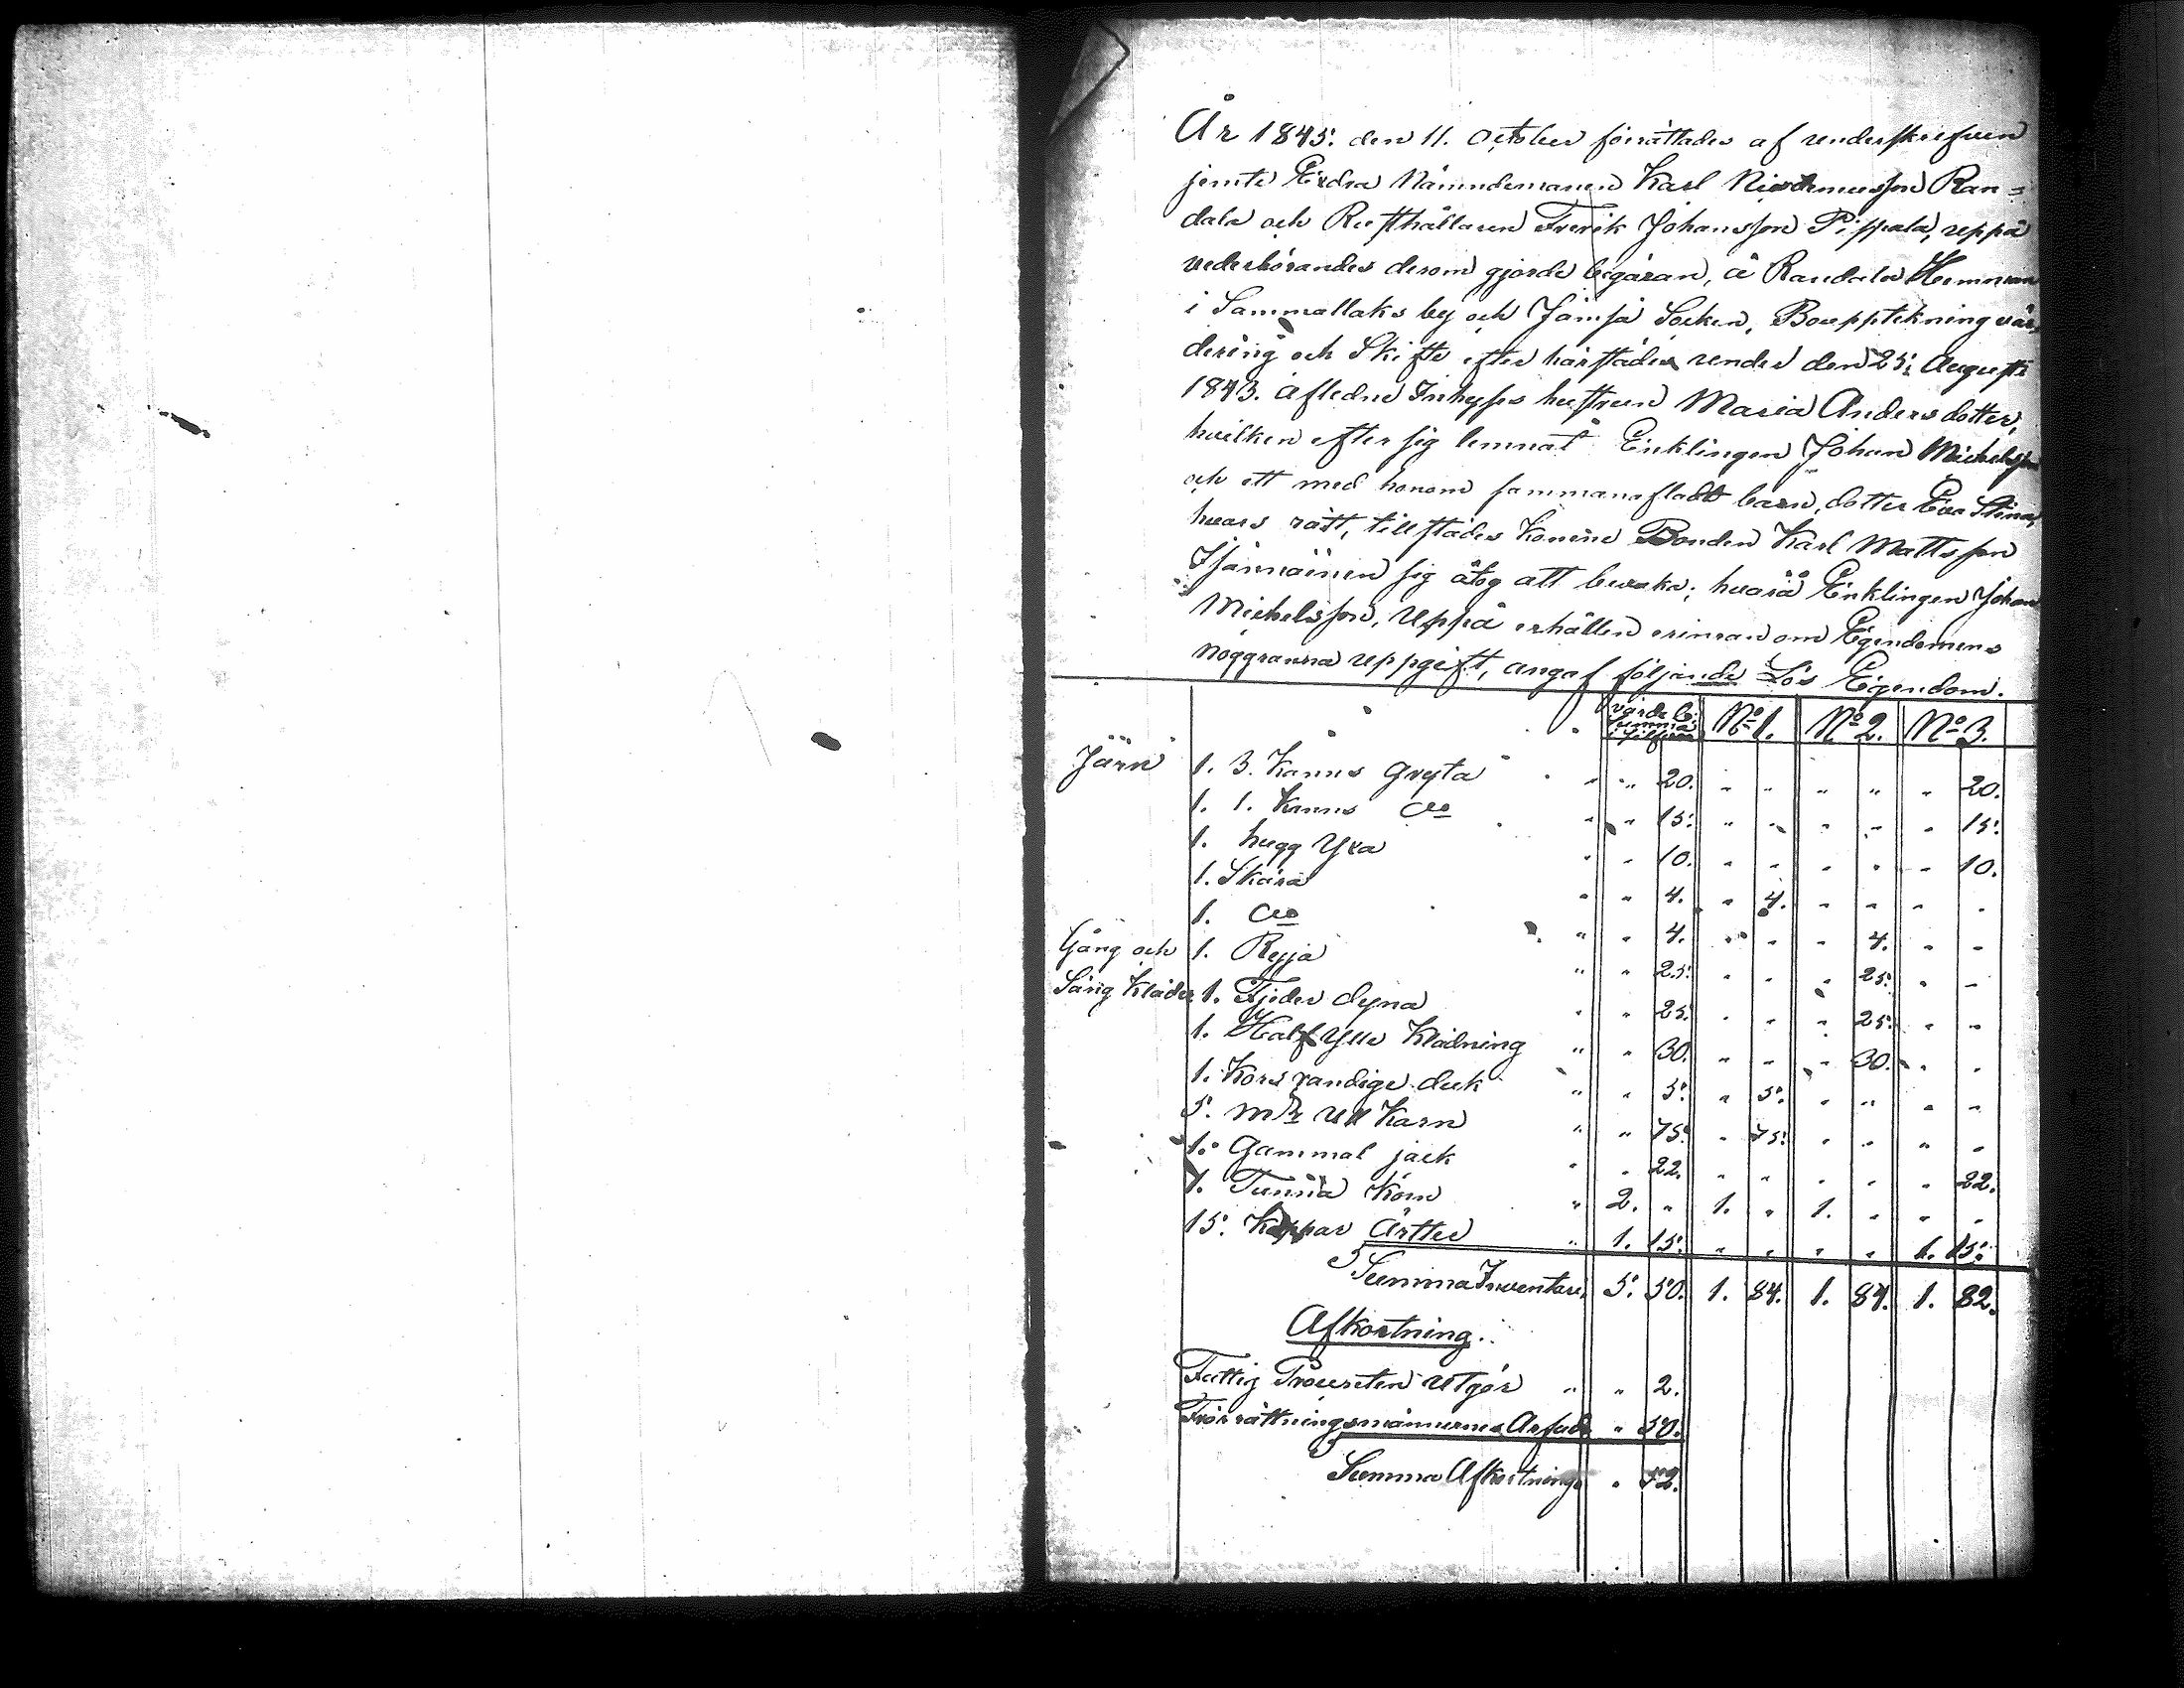 År 1845. den 11. October förrättades af underskrefven
jemte Erdra Nämndemannen Karl Nicodemusson Ran=
dala och Rusthållaren Fredrik Johansson Pippala, uppå
vederbörandes derom gjorde begäran, å Randala Hemman
i Sammallaks by och Jämsä Socken, Boupptekning vär-
dering och Skifte efter härstädes under den 25: Augusti
1843. aflednе Inhyses hustrun Maria Andersdotter,
hvilken efter sig lemnat Enklingen Johan Michelsson
och ett med honom sammanafladt barn, dotter Eva Stina,
hvars rätt, tillstädes Komne Bonden Karl Mattsson
sig åtog att bevaka; hvarå Enklingen Johan
Michelsson, Uppå erhållen erinran om Egendomens
noggranna uppgift, angaf följande Lös Egendom.
värde be
summa
i Silfver No 1. No 2. No 3.
Järn 1. 3. Kanns Gryta " " 20. " " " " " 20.
1. 1. Kanns do " " 15. " " " " " 15.
1. hugg Yxa " " 10. " " " " " 10.
1. Skära " " 4. " 4. " " " "
1. do " " 4. " " " 4. " "
Gång och 1. Ryja " " 25. " " " 25. " "
Säng Kläder 1. Fjeder dyna " " 25. " " " 25. " "
1. Half Ylle Klädning " " 30. " " " 30. " "
1. Kors randige duk " " 5. " 5. " " " "
5. mk Ull Karn " " 75. " 75. " " " "
1. Gammal jack " " 22. " " " " " 22.
1. Tunna Korn " 2. " 1. " 1. " " "
15. Kappar Ärtter " 1. 15. " " " " 1. 15.
Summa Inventari. 5. 50. 1. 84. 1. 84. 1. 82.
Afkortning.
Fattig Procenten utgör " " 2.
Förrättningsmännernes Arfvode " 50.
Summa Afkortning. " 52.